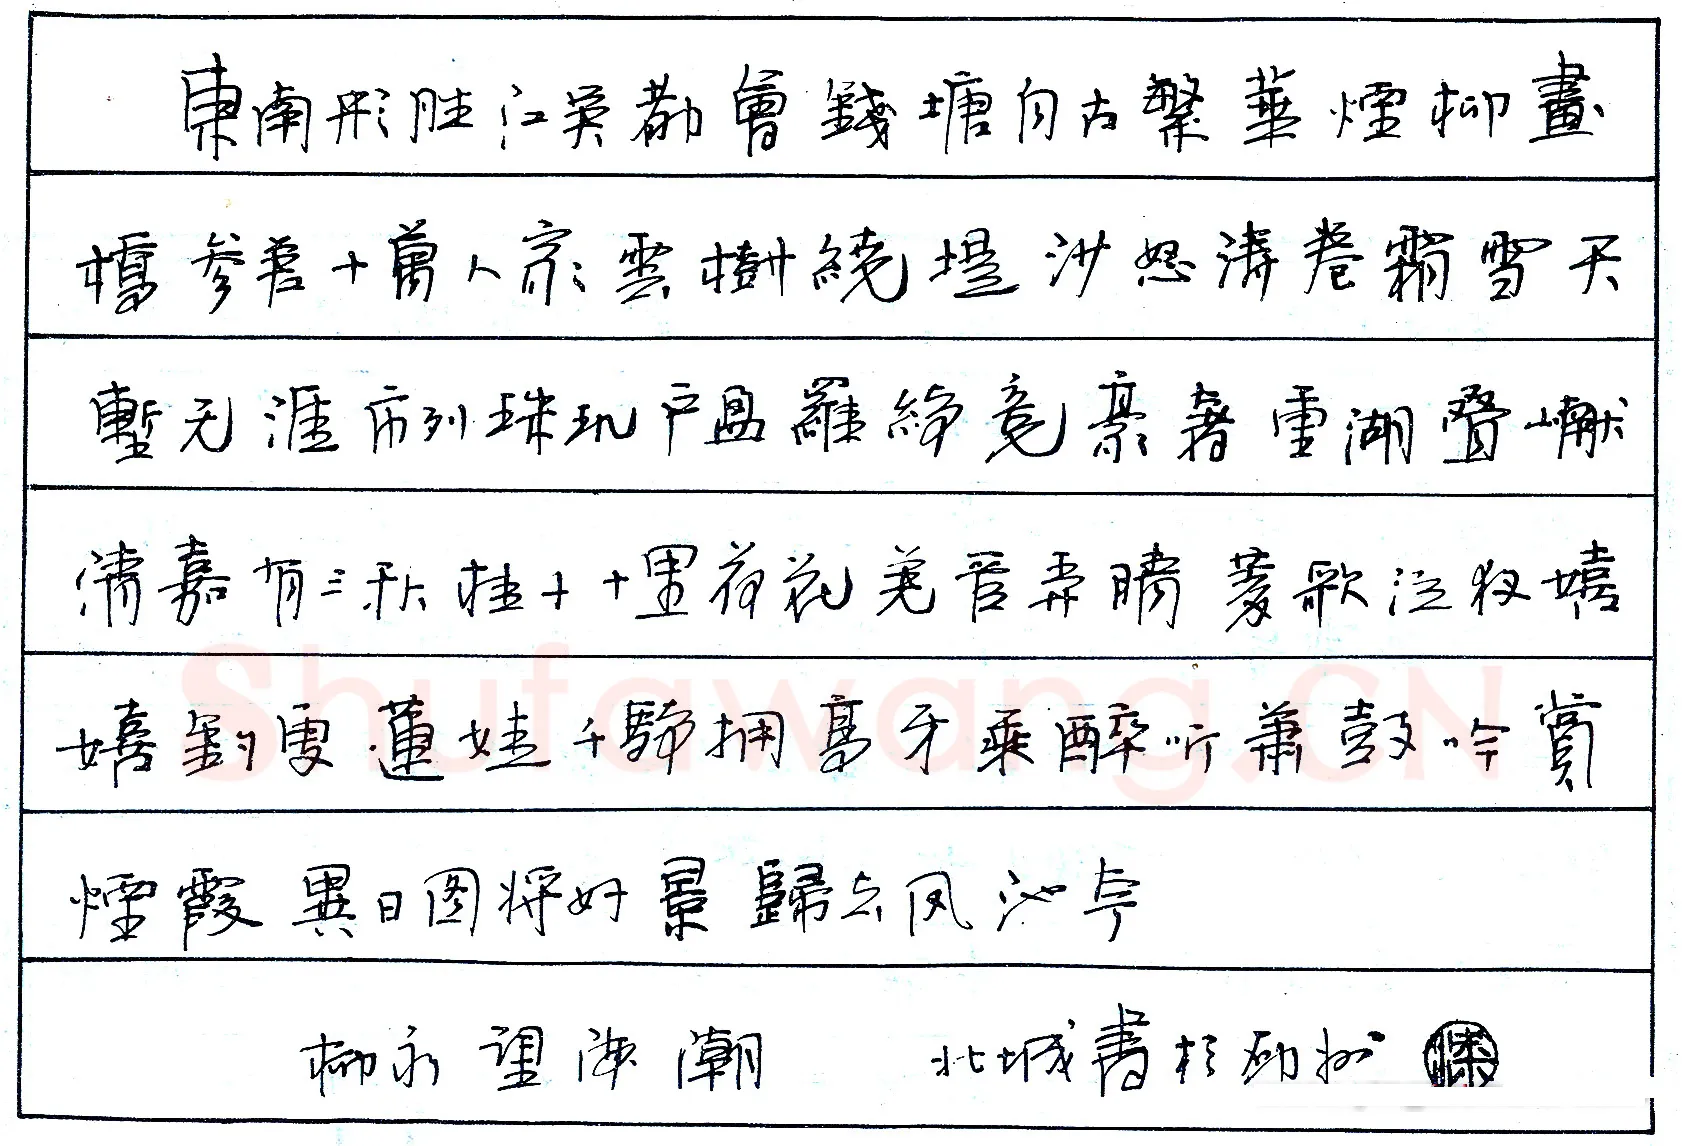 東南形胜江吳都會錢塘自古繁華煙柳畫
橋參差十萬人家雲樹繞堤沙怒濤卷霜雪天
塹无涯市列珠玑户盈羅綺竞豪奢重湖疊巘
清嘉有三秋桂十十里荷花羌管弄晴菱歌泛夜嬉
嬉釣叟蓮娃千騎拥高牙乘醉听蕭鼓吟賞
煙霞異日图将好景歸去凤池夸
柳永望海潮 北城書於
Shufawang.CN